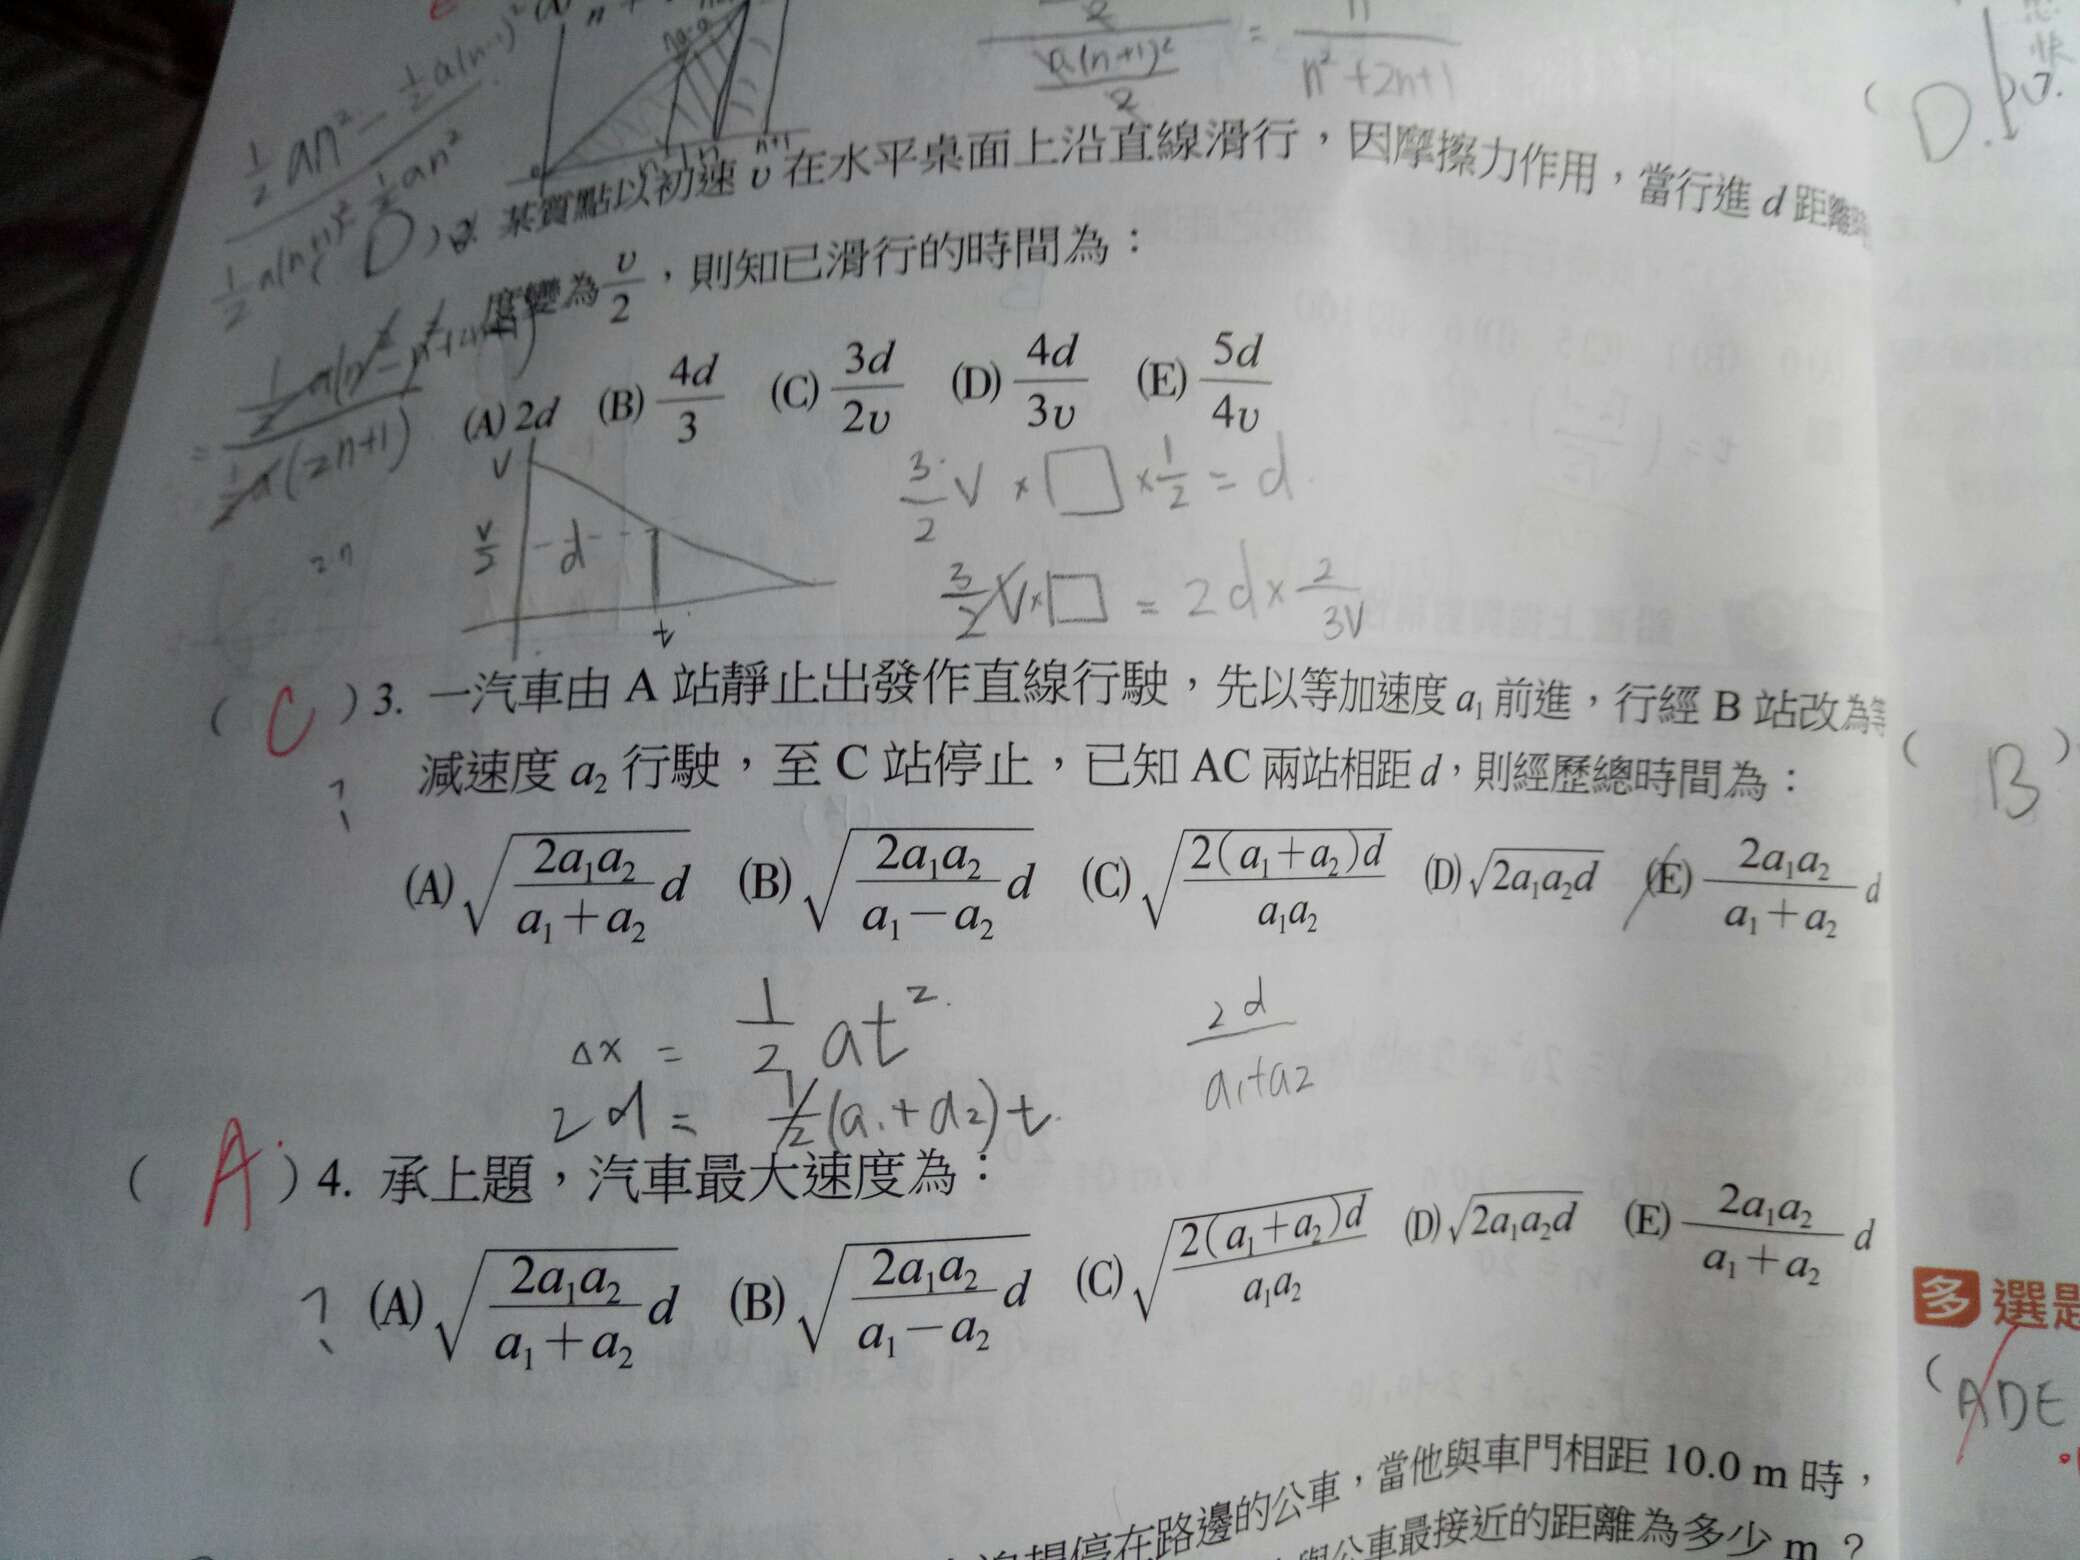 1/2 an² − 1/2 a(n−1)²
1/2 an²
a(n+1)²/2 = n/(n²+2n+1)
n+1
(D)2. 某質點以初速 υ 在水平桌面上沿直線滑行，因摩擦力作用，當行進 d 距離
度變為 υ/2，則知已滑行的時間為：
(A) 2d (B) 4d/3 (C) 3d/2υ (D) 4d/3υ (E) 5d/4υ
1/2 a(2n+1)
v
d
t
3/2 v × □ × 1/2 = d
3/2 v × □ = 2d × 2/3v
(C)3. 一汽車由 A 站靜止出發作直線行駛，先以等加速度 a₁ 前進，行經 B 站改為等
減速度 a₂ 行駛，至 C 站停止，已知 AC 兩站相距 d，則經歷總時間為：
?
(A) √(2a₁a₂/(a₁+a₂) d) (B) √(2a₁a₂/(a₁−a₂) d) (C) √(2(a₁+a₂)d/a₁a₂) (D) √(2a₁a₂d) (E) 2a₁a₂/(a₁+a₂) d
Δx = 1/2 at²
2d/(a₁+a₂)
2d = 1/2 (a₁+a₂)t
(A)4. 承上題，汽車最大速度為：
?
(A) √(2a₁a₂/(a₁+a₂) d) (B) √(2a₁a₂/(a₁−a₂) d) (C) √(2(a₁+a₂)d/a₁a₂) (D) √(2a₁a₂d) (E) 2a₁a₂/(a₁+a₂) d
停在路邊的公車，當他與車門相距 10.0 m 時，
與公車最接近的距離為多少 m？
(D.)7.
(B)
多選題
(ADE